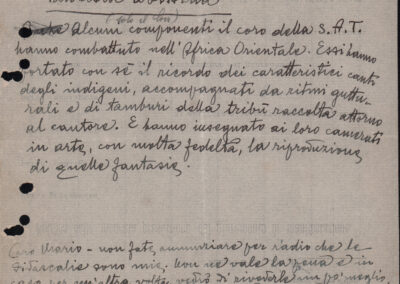 (solo il ton)
Alcuni componenti il coro della S.A.T.
hanno combattuto nell'Africa Orientale. Essi hanno
portato con sé il ricordo dei caratteristici canti
degli indigeni, accompagnati da ritmi guttu-
rali e di tamburi della tribù raccolta attorno
al cantore. E hanno insegnato ai loro camerati
in arte, con molta fedeltà, la riproduzione
di quelle fantasie.
Caro Mario - non fate annunziare per radio che le
didascalie sono mie. Non ne vale la pena e in
caso per un'altra volta vedrò di rivederle un po' meglio